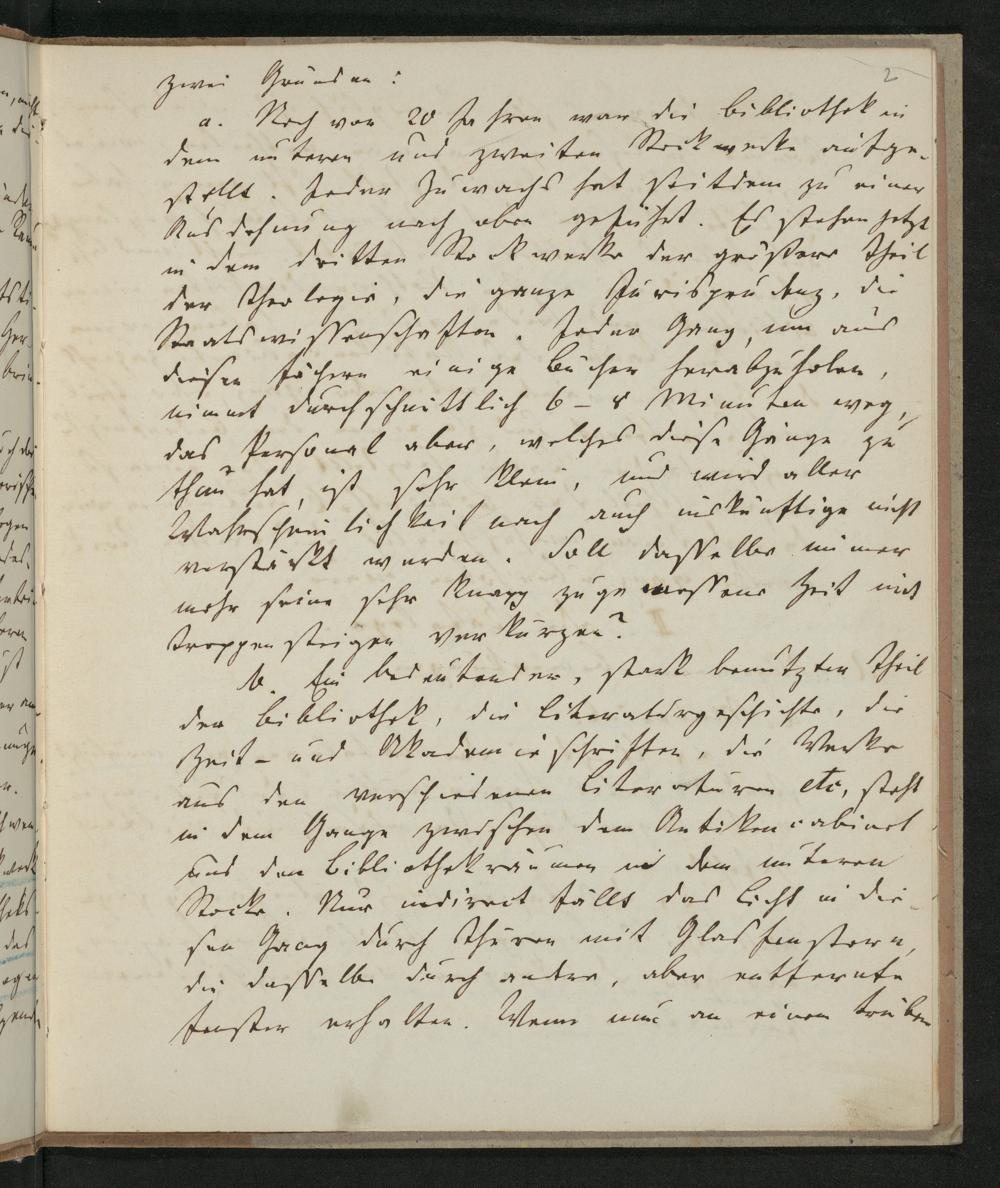 2
zwei Gründen:
a. Noch vor 20 Jahren war die Bibliothek in
dem unteren und zweiten Stockwerke aufge-
stellt. Jeder Zuwachs hat seitdem zu einer
Ausdehnung nach oben geführt. Es stehen jetzt
in dem dritten Stockwerke der größere Theil
der Theologie, die ganze Jurisprudenz, die
Staatswissenschaften. Jeder Gang, um aus
diesen Fächern einige Bücher herabzuholen,
nimmt durchschnittlich 6 – 8 Minuten weg,
das Personal aber, welches diese Gänge zu
thun hat, ist sehr klein, und wird aller
Wahrscheinlichkeit nach auch inskünftige nicht
verstärkt werden. Soll dasselbe immer
mehr seine sehr knapp zugemessene Zeit mit
Treppensteigen verkürzen?
b. Ein bedeutender, stark benutzter Theil
der Bibliothek, die Literaturgeschichte, die
Zeit- und Akademieschriften, die Werke
aus den verschiedenen Literaturen etc, steht
in dem Gange zwischen dem Antikencabinet
und den Bibliothekräumen in dem unteren
Stocke. Nur indirect fällt das Licht in die-
sen Gang durch Thüren mit Glasfenstern,
die dasselbe durch andre, aber entfernte
Fenster erhalten. Wenn nun an einem trüben